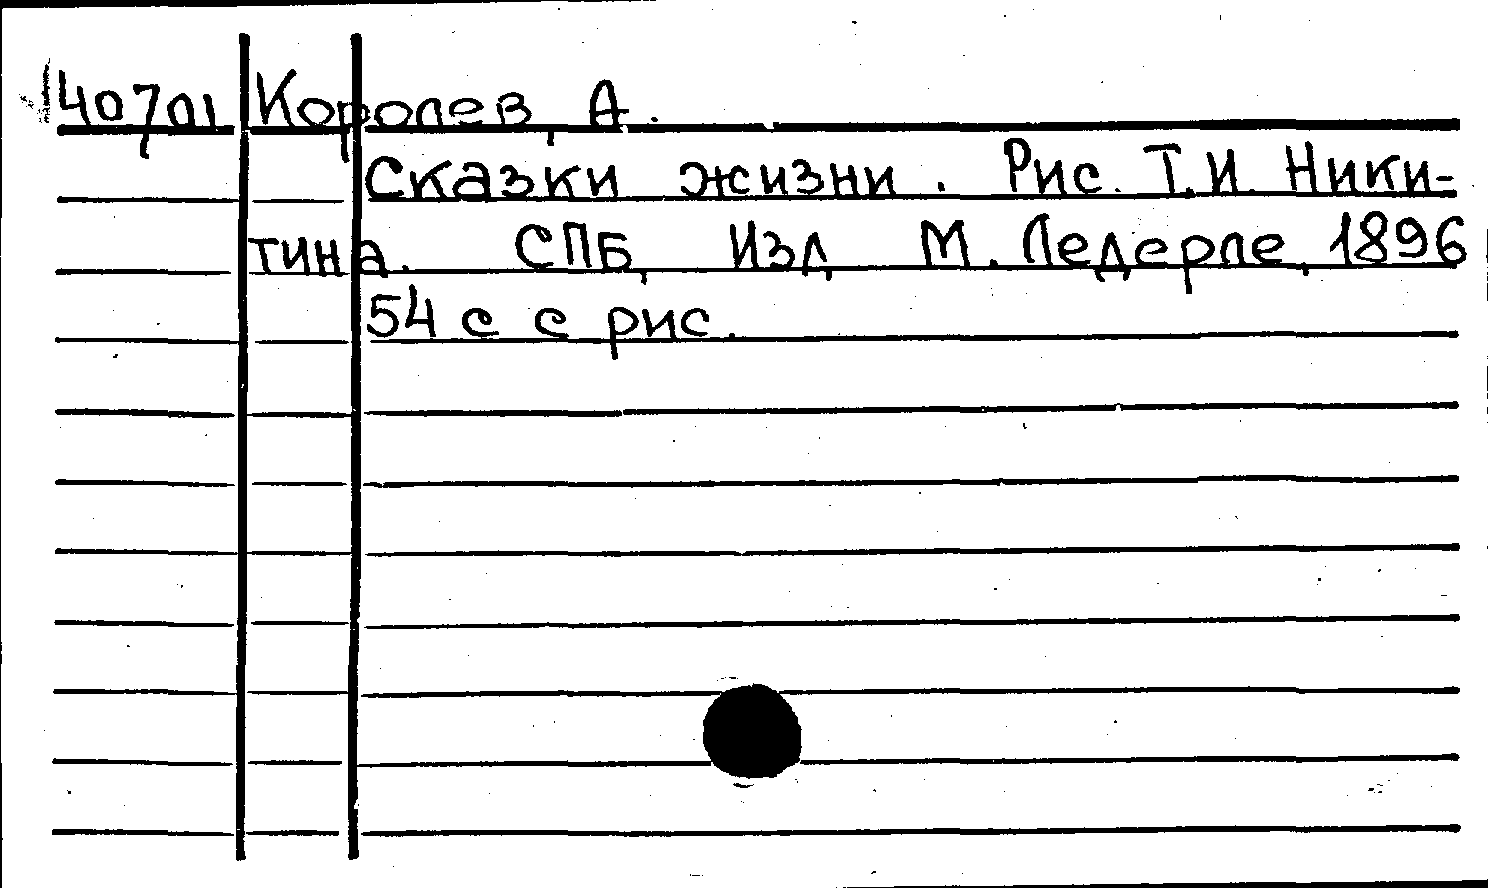 40701 Королев, А.
Сказки жизни. Рис. Т.И. Ники-
тина. СПБ, Изд, М. Ледерле, 1896
54 с с рис.